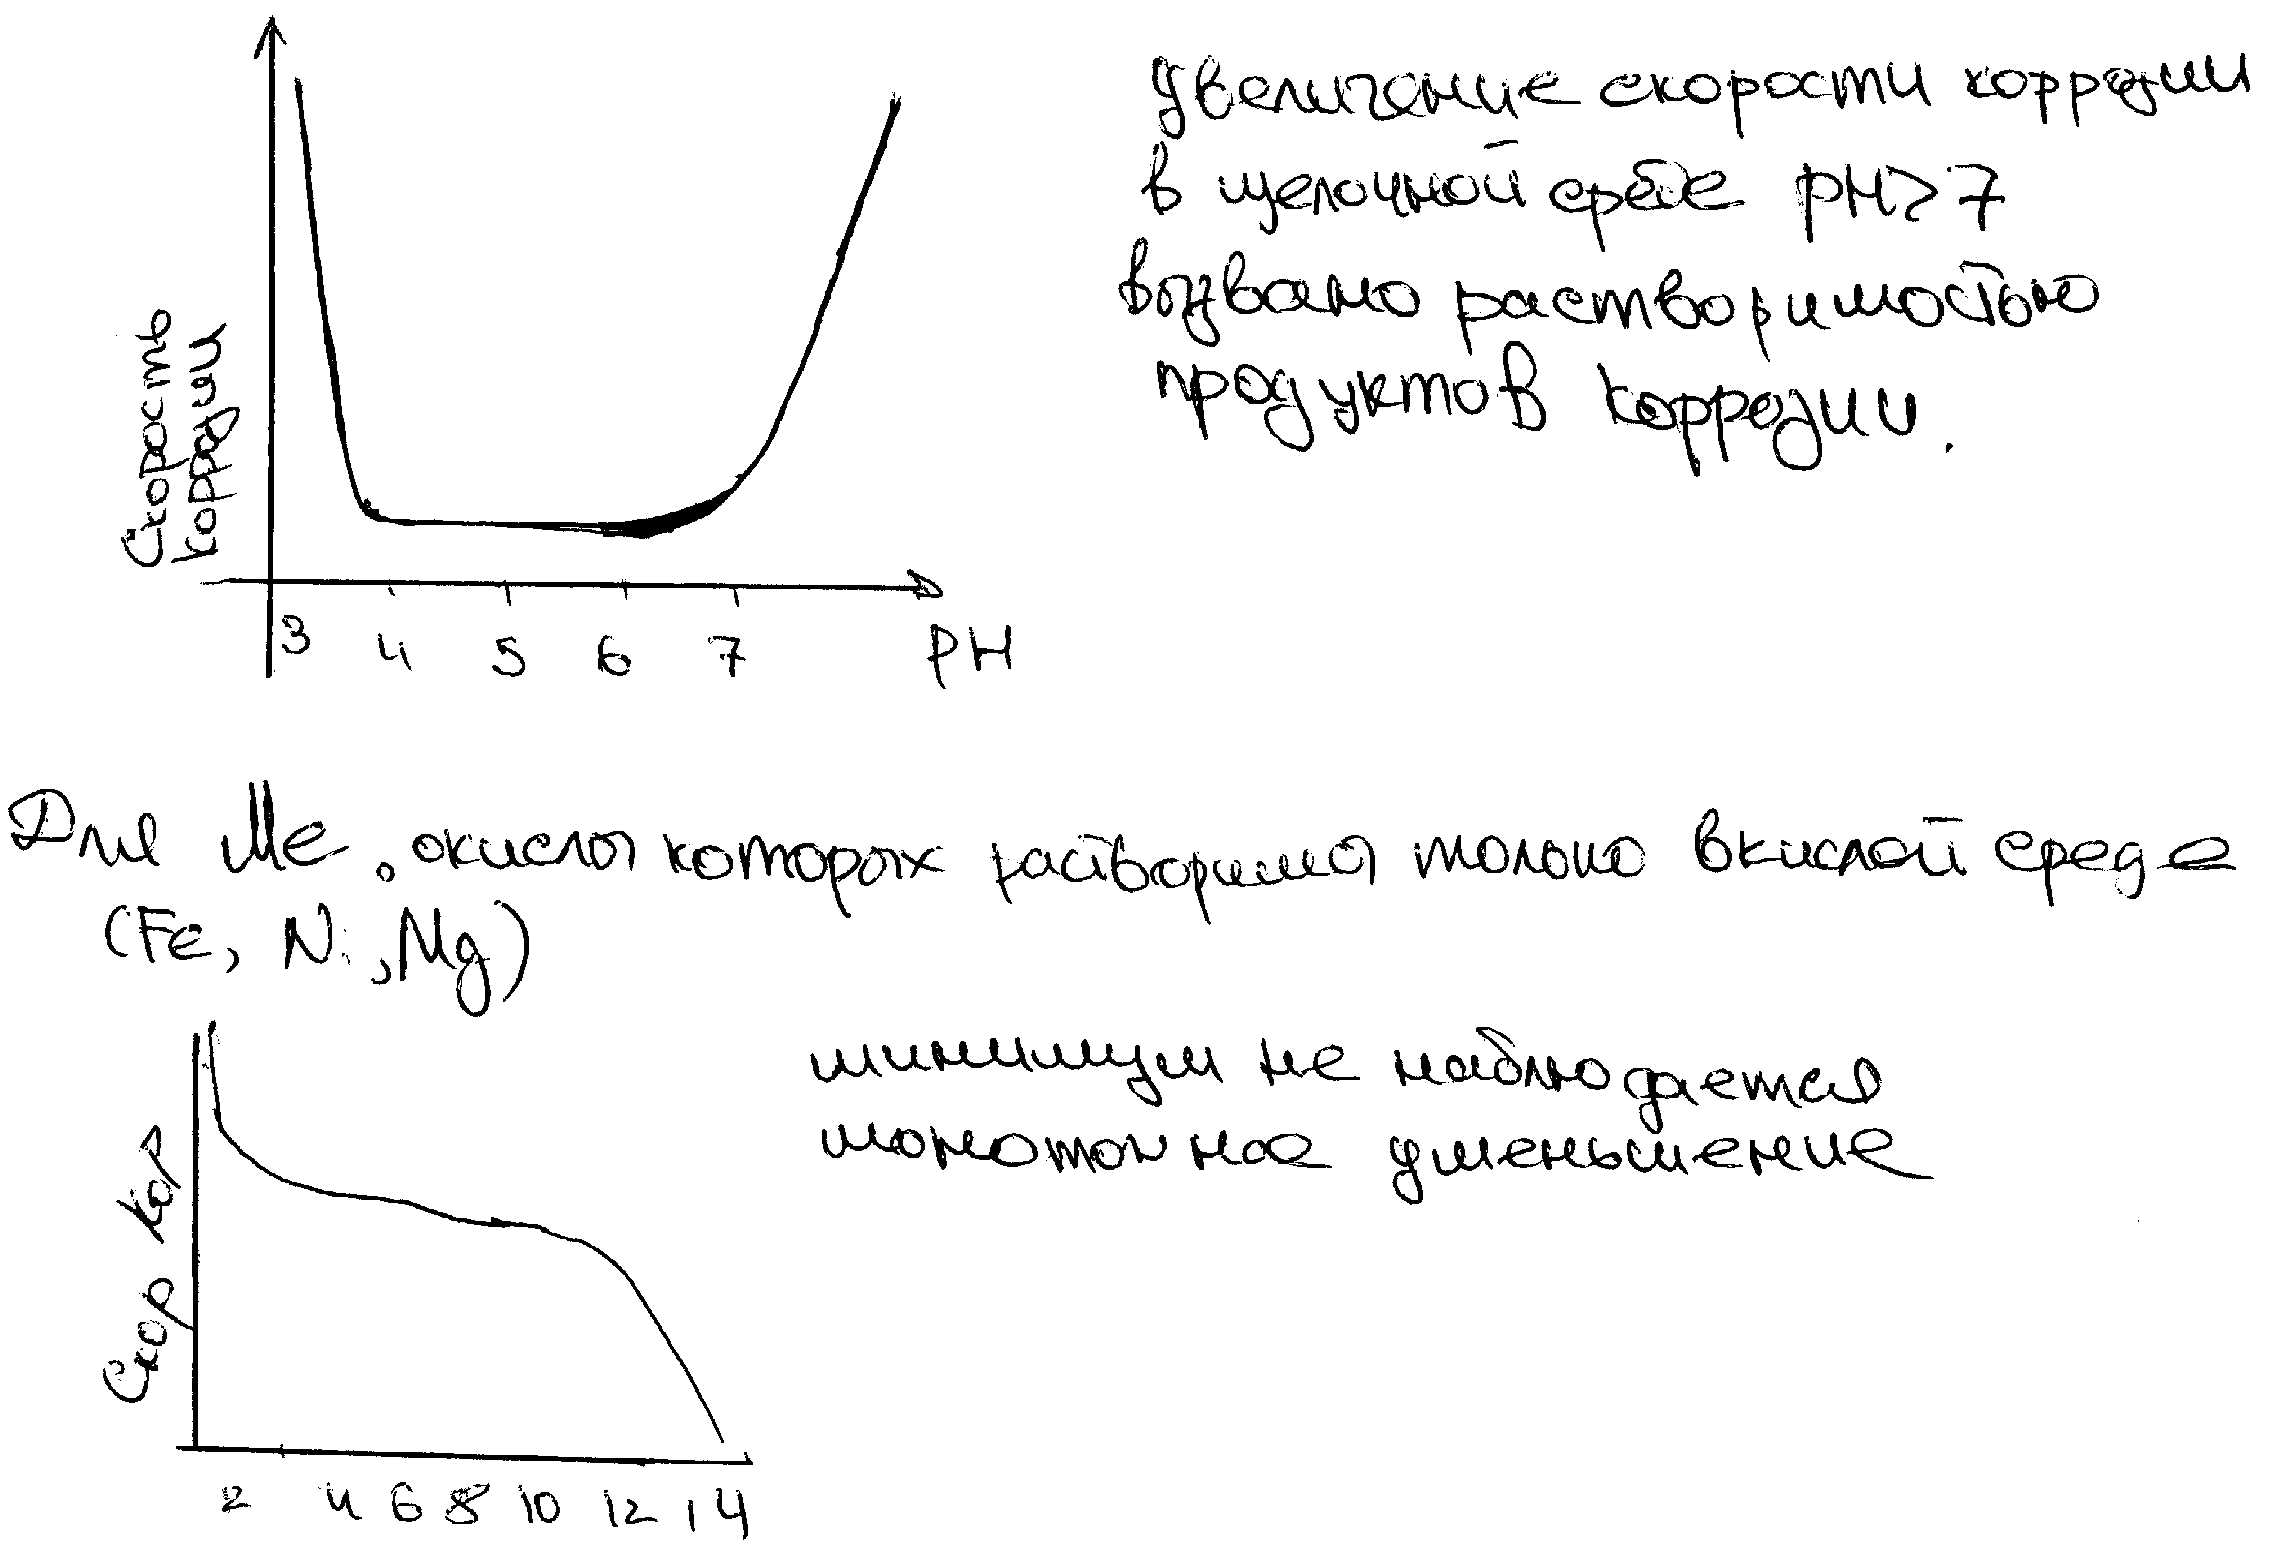 увеличение скорости коррозии
в щелочной среде pH>7
вызвано растворимостью
продуктов коррозии.
Скорость
коррозии
3 4 5 6 7 PH
Для Ме, окислы которых растворимы только в кислой среде
(Fe, Ni, Mg)
минимум не наблюдается
монотонное уменьшение
Скор кор
2 4 6 8 10 12 14